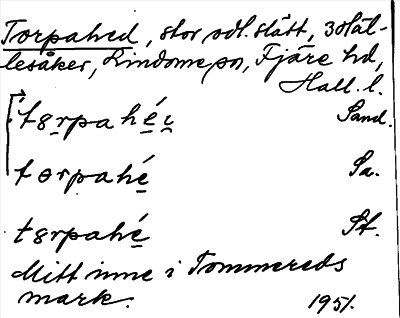 Torpahed, stor odl. slätt, 3 Häl-
lesåker, Lindome sn, Fjäre hd,
Hall. l.
tɞrpahé̱i̯ Sand.
tɵrpahé̱ Sa.
tɞrpahé̱ St.
Mitt inne i Tommereds
mark. 1951.